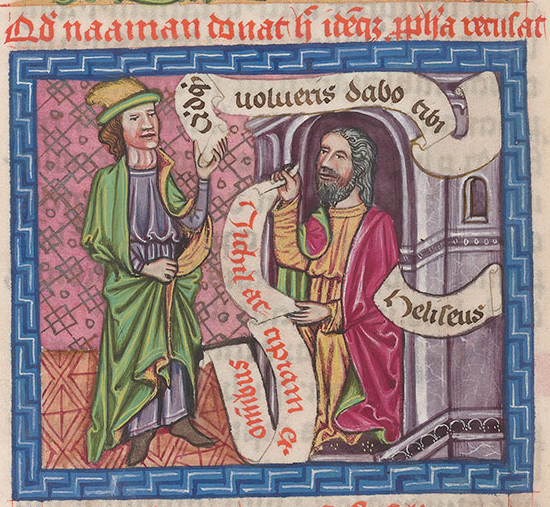 Qđ naaman donat ħ idēqꝫ ꝓpħa recusat
uolueris dabo tibi
Nichil ac cipiam ex
omnibus
Heliseus